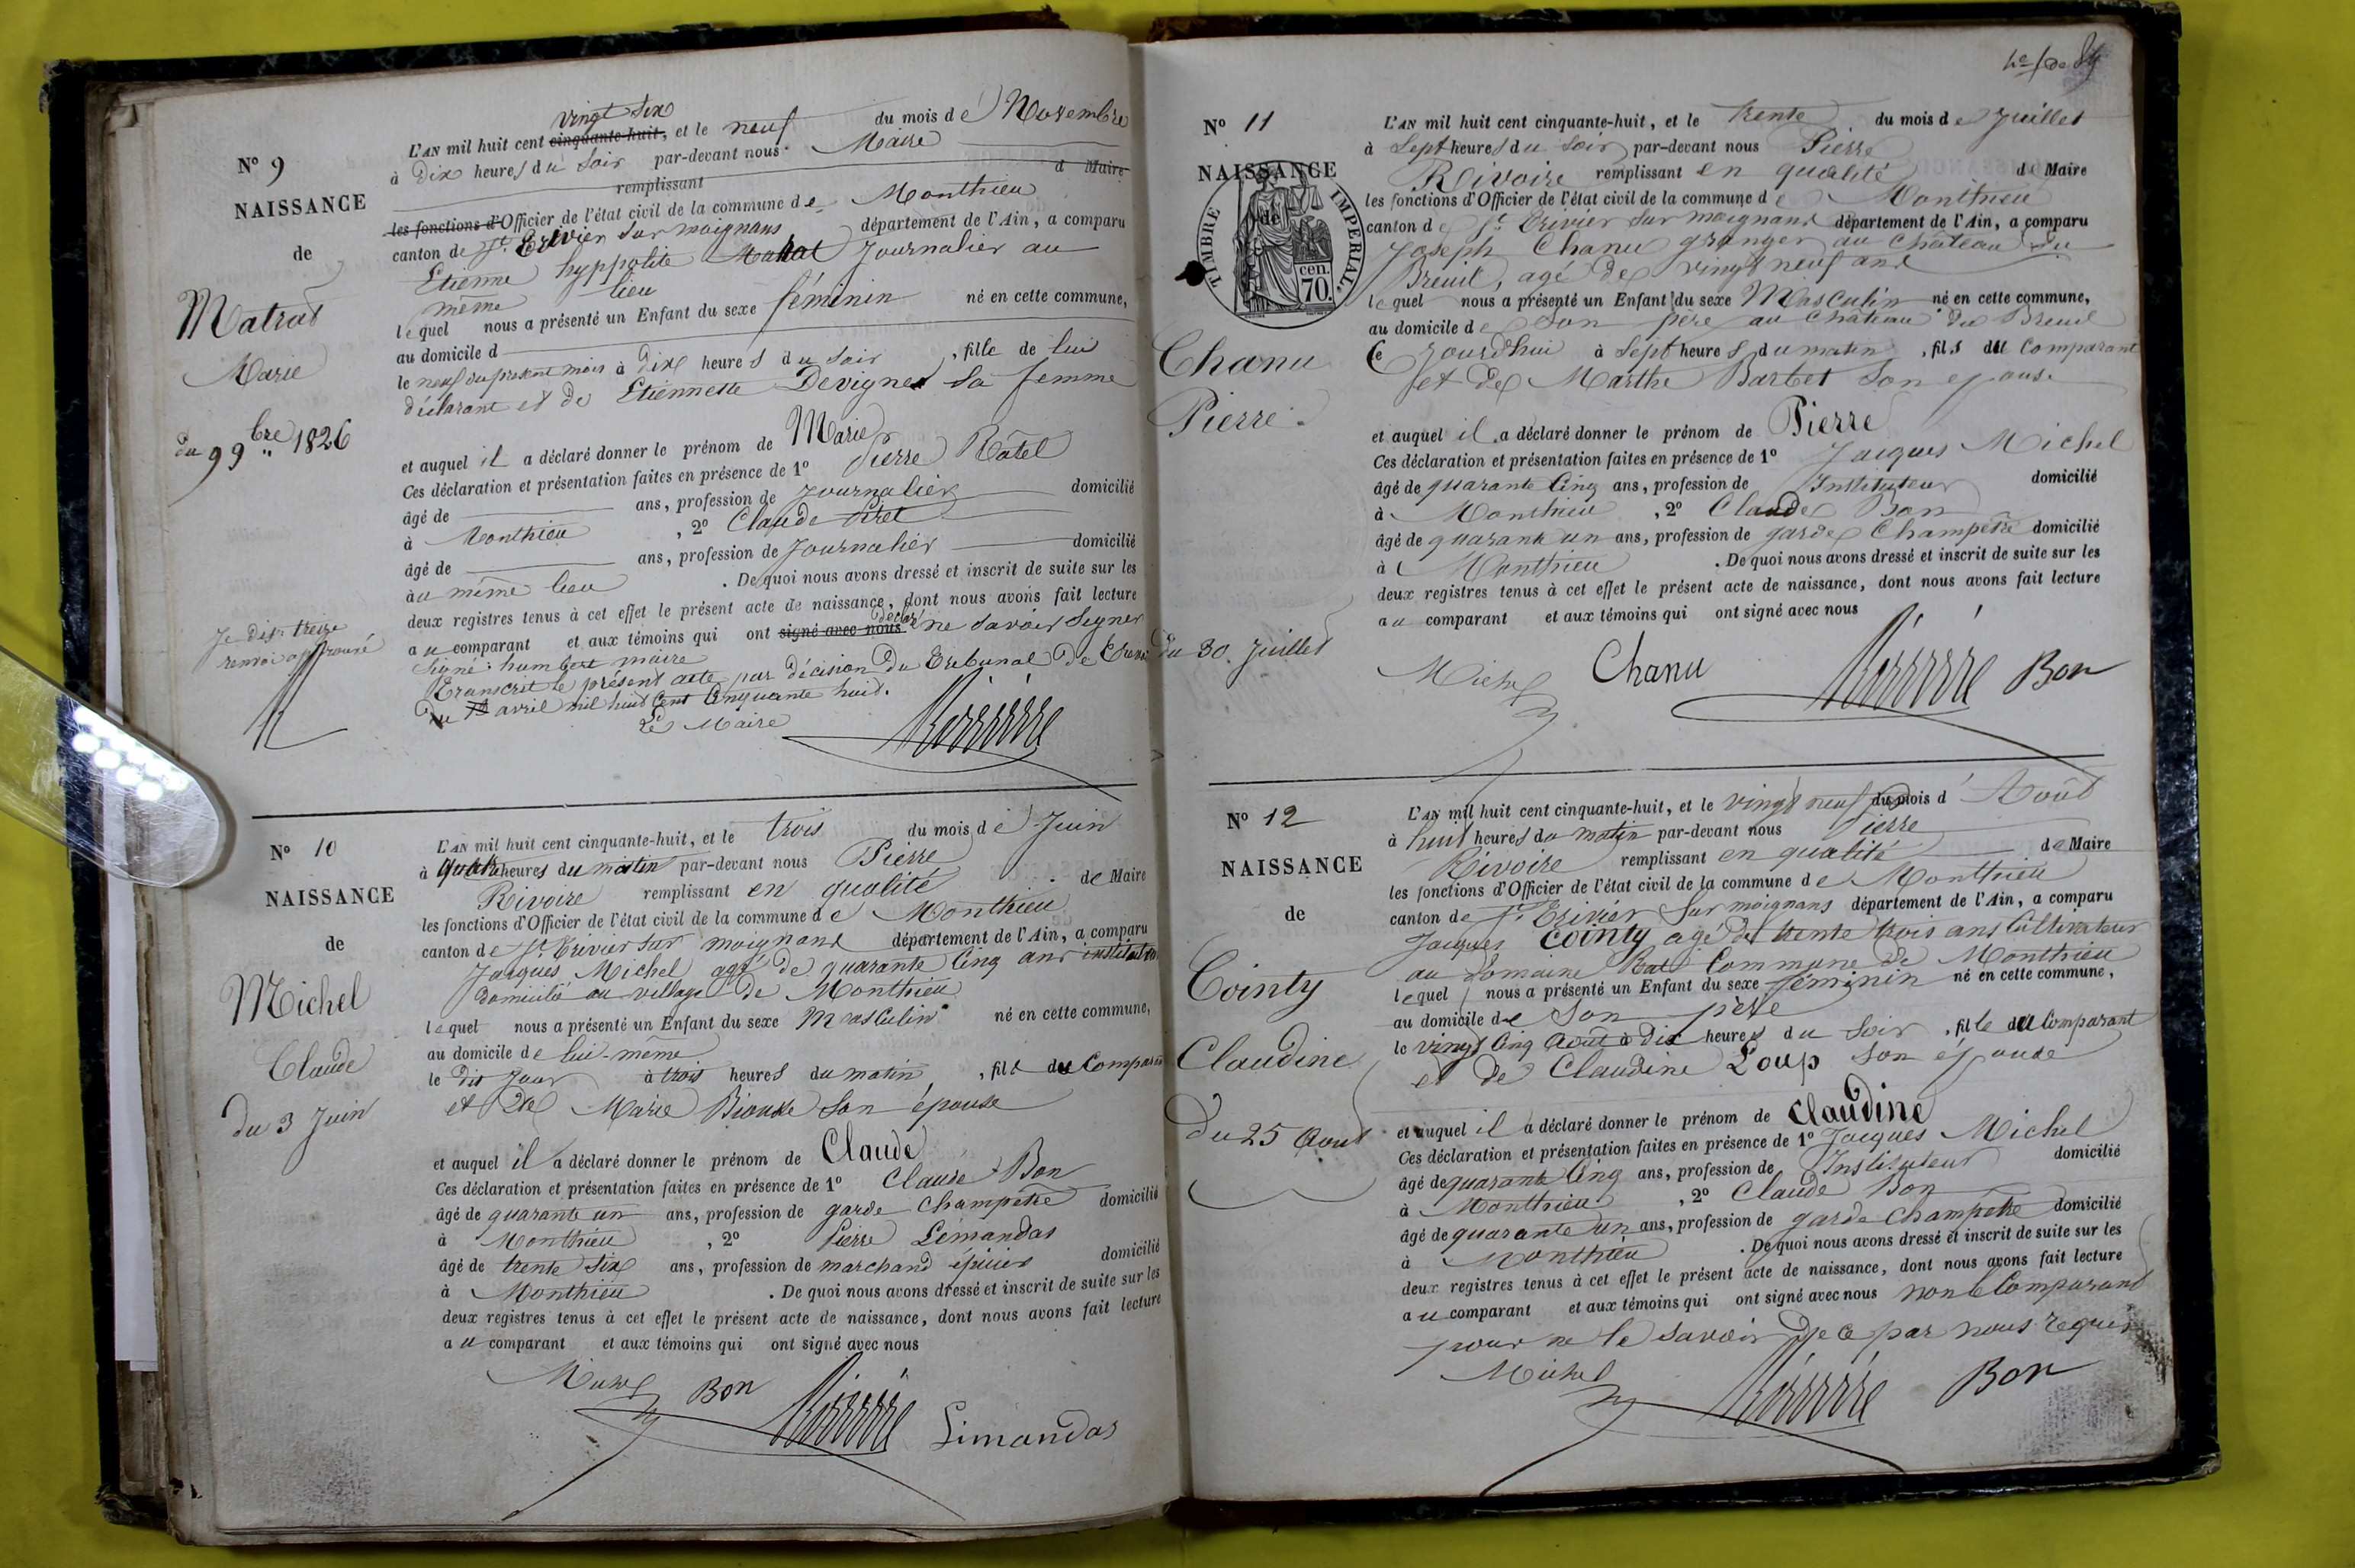 N° 9
NAISSANCE
de
Matrat
Marie
du 9 9bre 1826
vingt six
L'AN mil huit cent cinquante-huit, et le neuf du mois de Novembre
à Dix heures du soir par-devant nous Maire
remplissant d Maire
les fonctions d'Officier de l'état civil de la commune de Monthieu
canton de St Trivier sur moignans département de l'Ain, a comparu
Etienne hyppolite Matrat Journalier au
même lieu
lequel nous a présenté un Enfant du sexe féminin né en cette commune,
au domicile d
le neuf du présent mois à Dix heures du soir, fille de lui
déclarant et de Etiennette Devignes sa femme
et auquel il a déclaré donner le prénom de Marie
Ces déclaration et présentation faites en présence de 1° Pierre Ratel
âgé de ans, profession de Journalier domicilié
à Monthieu, 2° Claude
âgé de ans, profession de Journalier domicilié
au même lieu. De quoi nous avons dressé et inscrit de suite sur les
deux registres tenus à cet effet le présent acte de naissance, dont nous avons fait lecture
au comparant et aux témoins qui ont signé avec nous déclaré ne savoir signer
Signé: humbert maire
Transcrit le présent acte par décision du Tribunal de
Du avril mil huit Cent Cinquante huit.
Le Maire
Rivoire
Je dis treize
renvoi approuvé
N° 10
NAISSANCE
de
Michel
Claude
du 3 Juin
L'AN mil huit cent cinquante-huit, et le trois du mois de Juin
à quatre heures du matin par-devant nous Pierre
Rivoire remplissant en qualité de Maire
les fonctions d'Officier de l'état civil de la commune de Monthieu
canton de St Trivier sur moignans département de l'Ain, a comparu
Jacques Michel agé de quarante Cinq ans instituteur
domicilié au village de Monthieu
lequel nous a présenté un Enfant du sexe Masculin né en cette commune,
au domicile de lui-même
le dit Jour à trois heures du matin, fils du Comparant
et de Marie son épouse
et auquel il a déclaré donner le prénom de Claude
Ces déclaration et présentation faites en présence de 1° Claude Bon
âgé de quarante un ans, profession de garde Champetre domicilié
à Monthieu, 2° Pierre Limandas
âgé de trente six ans, profession de marchand épicier domicilié
à Monthieu. De quoi nous avons dressé et inscrit de suite sur les
deux registres tenus à cet effet le présent acte de naissance, dont nous avons fait lecture
au comparant et aux témoins qui ont signé avec nous
Michel Bon Rivoire Limandas
N° 11
NAISSANCE
de
TIMBRE IMPERIAL
70 cen.
Chanu
Pierre
du 30 Juillet
L'AN mil huit cent cinquante-huit, et le trente du mois de Juillet
à Sept heures du soir par-devant nous Pierre
Rivoire remplissant en qualité de Maire
les fonctions d'Officier de l'état civil de la commune de Monthieu
canton de St Trivier sur moignans département de l'Ain, a comparu
Joseph Chanu granger au château du
Breuil, agé de vingt neuf ans
lequel nous a présenté un Enfant du sexe Masculin né en cette commune,
au domicile de son père au château du Breuil
Ce Jourd'hui à Sept heures du matin, fils du Comparant
et de Marthe Barbet son epouse
et auquel il a déclaré donner le prénom de Pierre
Ces déclaration et présentation faites en présence de 1° Jacques Michel
âgé de quarante Cinq ans, profession de Instituteur domicilié
à Monthieu, 2° Claude Bon
âgé de quarante un ans, profession de garde Champetre domicilié
à Monthieu. De quoi nous avons dressé et inscrit de suite sur les
deux registres tenus à cet effet le présent acte de naissance, dont nous avons fait lecture
au comparant et aux témoins qui ont signé avec nous
Michel Chanu Rivoire Bon
N° 12
NAISSANCE
de
Cointy
Claudine
Du 25 Aout
L'AN mil huit cent cinquante-huit, et le vingt neuf du mois d'Août
à huit heures du matin par-devant nous Pierre
Rivoire remplissant en qualité de Maire
les fonctions d'Officier de l'état civil de la commune de Monthieu
canton de St Trivier sur moignans département de l'Ain, a comparu
Jacques Cointy agé de trente trois ans Cultivateur
au Domaine Commune de Monthieu
lequel nous a présenté un Enfant du sexe féminin né en cette commune,
au domicile de son père
le vingt Cinq Août à Dix heures du soir, fille du Comparant
et de Claudine Loup son épouse
et auquel il a déclaré donner le prénom de Claudine
Ces déclaration et présentation faites en présence de 1° Jacques Michel
âgé de quarante Cinq ans, profession de Instituteur domicilié
à Monthieu, 2° Claude Bon
âgé de quarante un ans, profession de garde Champetre domicilié
à Monthieu. De quoi nous avons dressé et inscrit de suite sur les
deux registres tenus à cet effet le présent acte de naissance, dont nous avons fait lecture
au comparant et aux témoins qui ont signé avec nous non le Comparant
pour ne le savoir de ce par nous requis
Michel Rivoire Bon